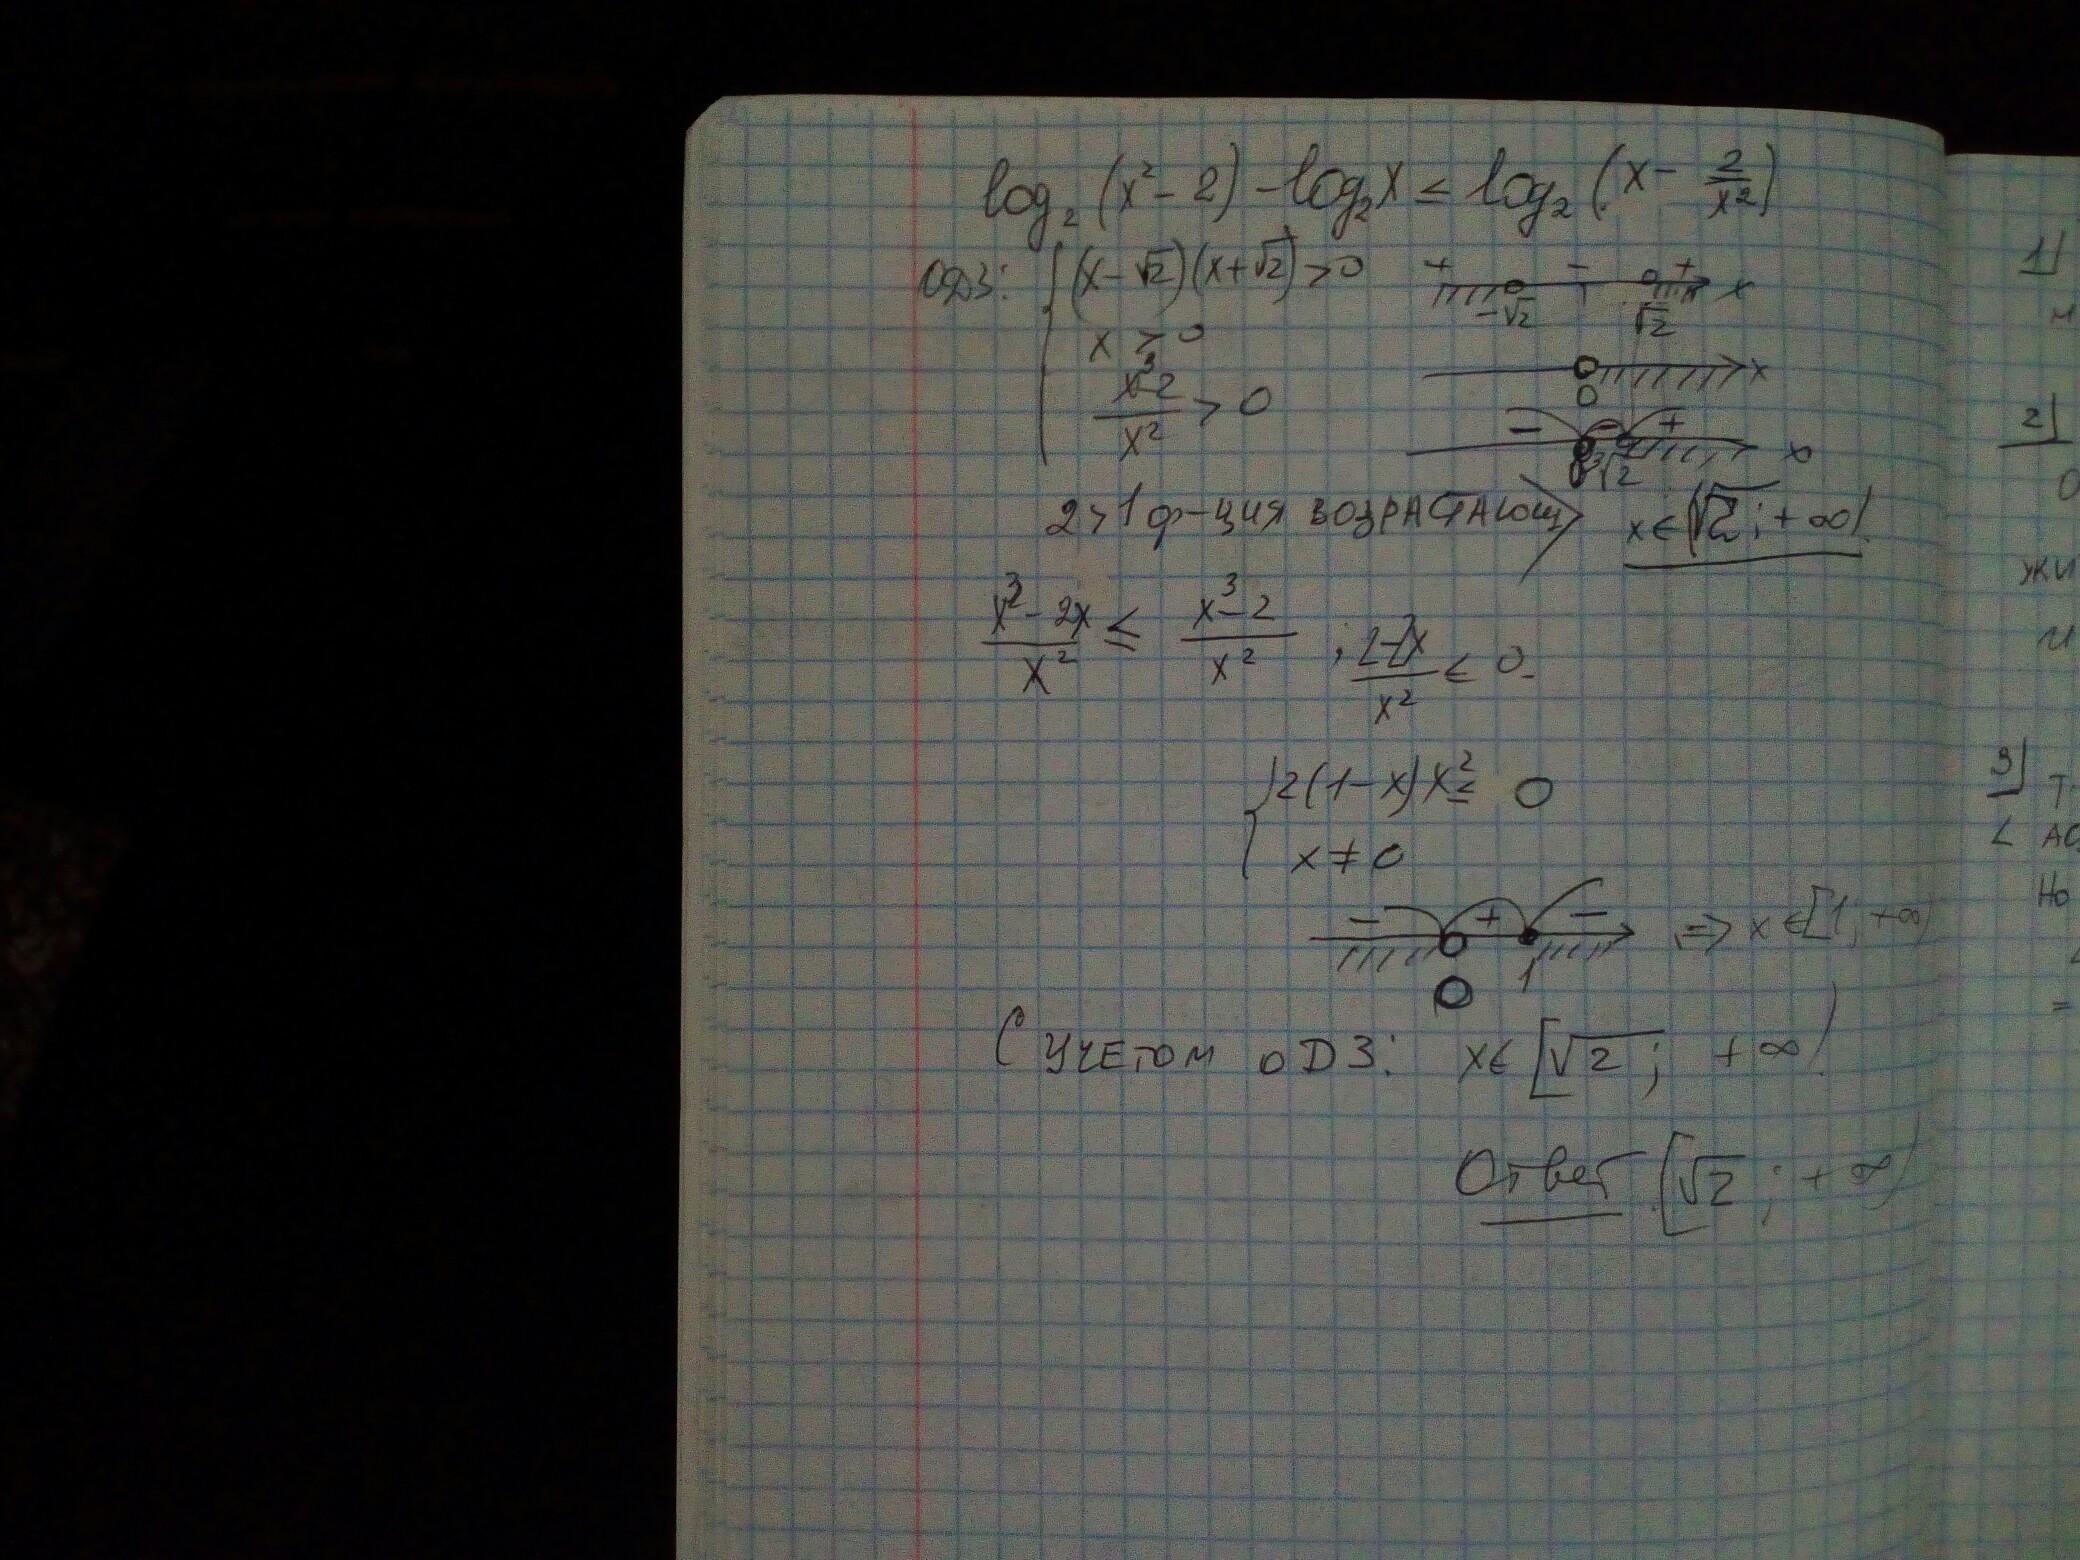 log₂(x²-2)-log₂x ≤ log₂(x-2/x²)
ОДЗ: (x-√2)(x+√2)>0 + - + x
-√2 √2
x > 0 x
0
(x³-2)/x² > 0 - - + x
0 ³√2
2>1 ф-ция возрастающ x∈(√2; +∞)
(x³-2x)/x² ≤ (x³-2)/x² ; (2-2x)/x² ≤ 0
2(1-x)x² ≤ 0
x≠0
- + - => x∈[1; +∞)
0 1
С УЧЕТОМ ОДЗ: x∈[√2; +∞)
Ответ [√2; +∞)
1)
2)
жи
и
3) Т
< АС
Но
=